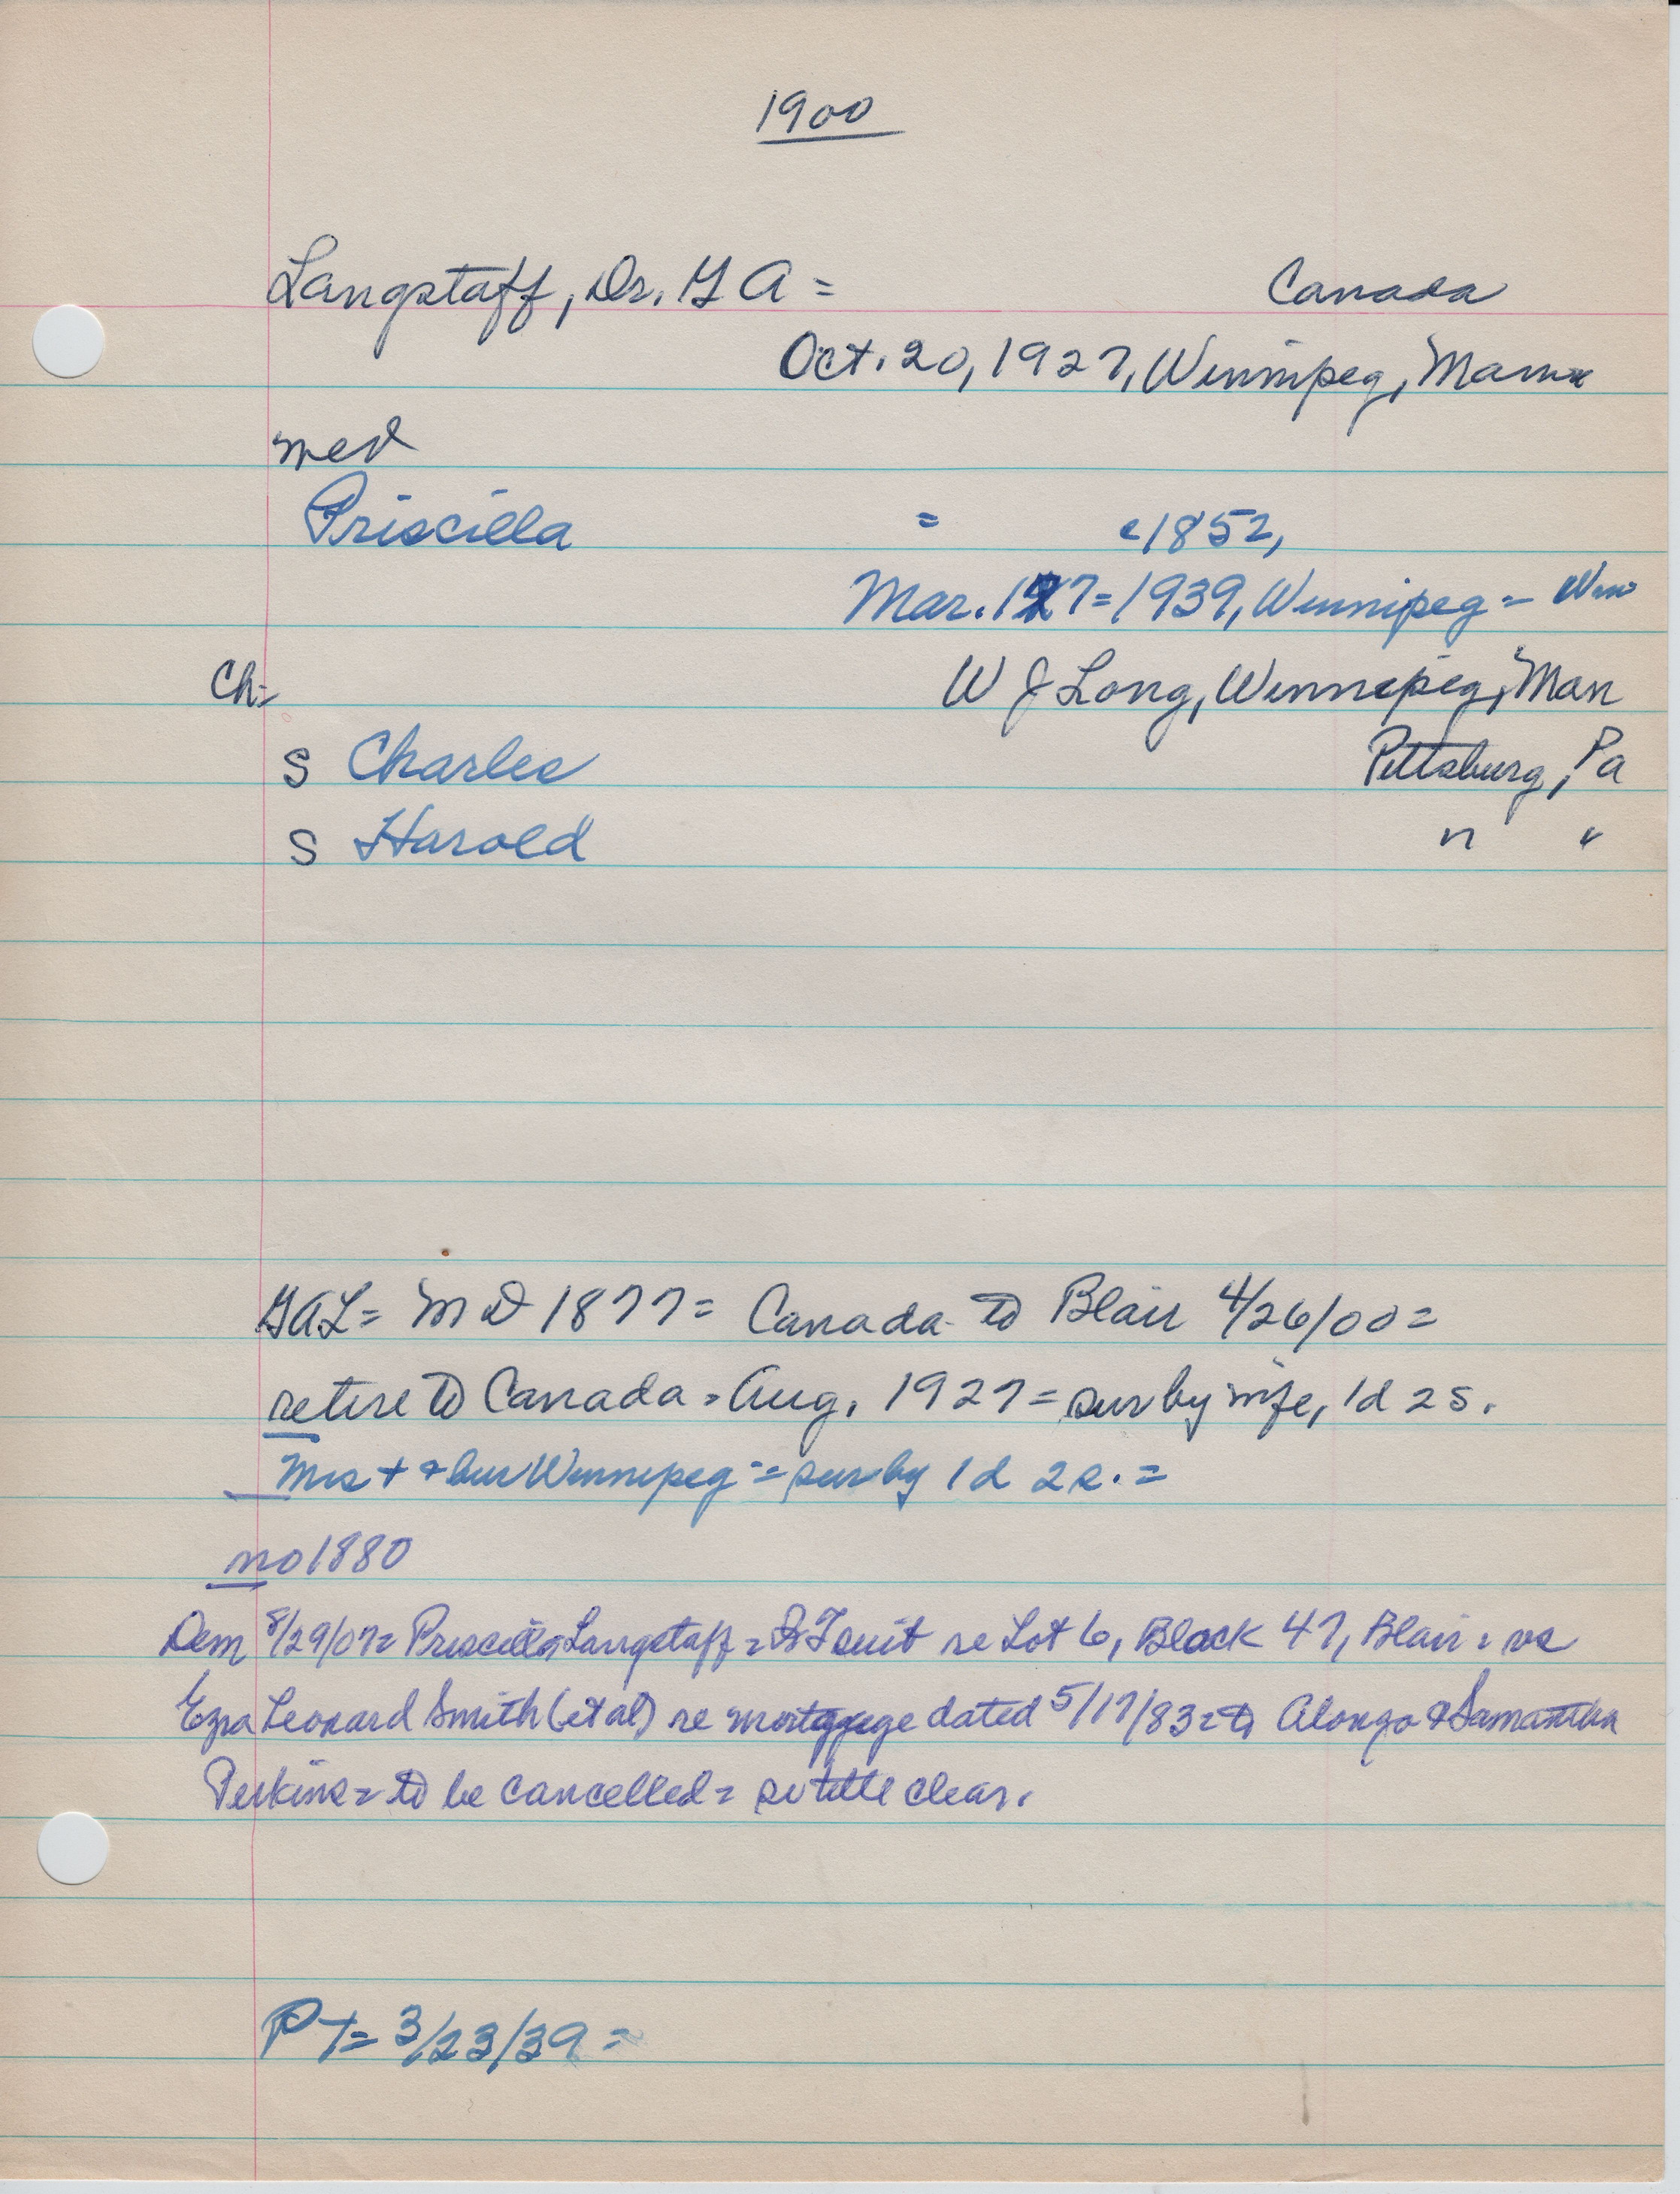 1900
Langstaff, Dr. G A = Canada
Oct. 20, 1927, Winnipeg,
med
Priscilla = c1852,
Mar. 17 = 1939, Winnipeg = Win
Ch= W J Long, Winnepeg, Man
S Charles Pittsburg, Pa
S Harold " "
GAL = MD 1877 = Canada to Blair 4/26/00 =
retire to Canada = Aug, 1927 = sur by wife, 1d 2s.
Mrs + & bur Winnipeg = sur by 1d 2s. =
no 1880
Dem 8/29/07 = Priscilla Langstaff = suit re Lot 6, Block 47, Blair = vs
Ezra Leonard Smith (et al) re mortggage dated 5/17/83 = to Alonzo & Samantha
Perkins = to be cancelled = title clear.
P + = 3/23/39 =